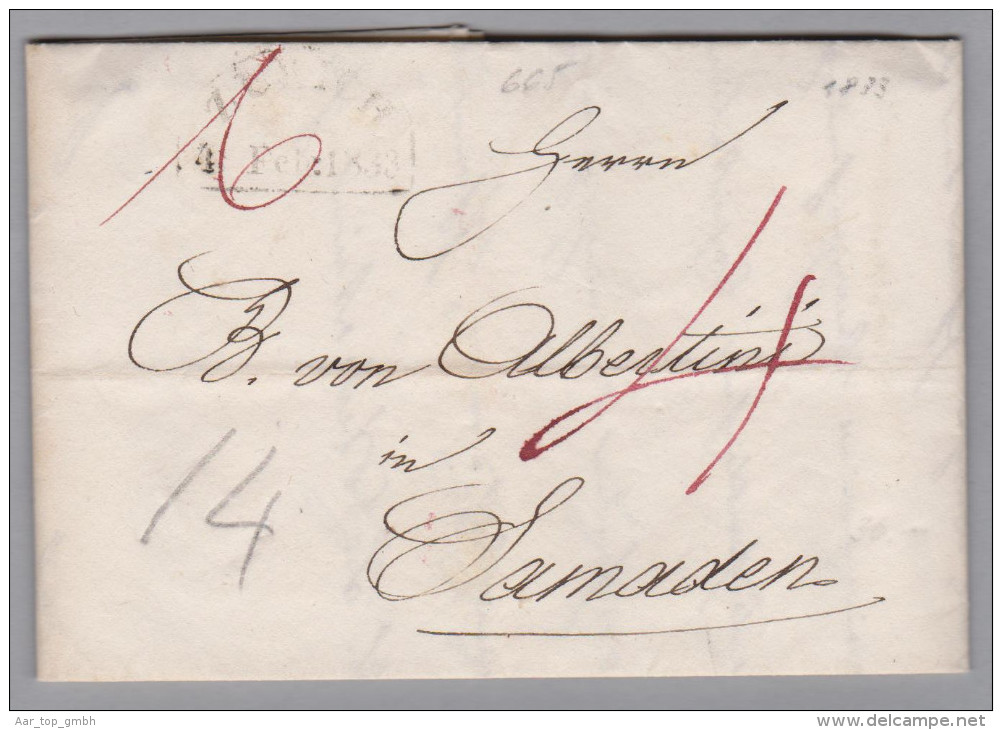 6
665
1833
4. Feb: 1833
Herrn
B. von Albertini
4
in
14
Samaden
Aar_top_gmbh
www.delcampe.net